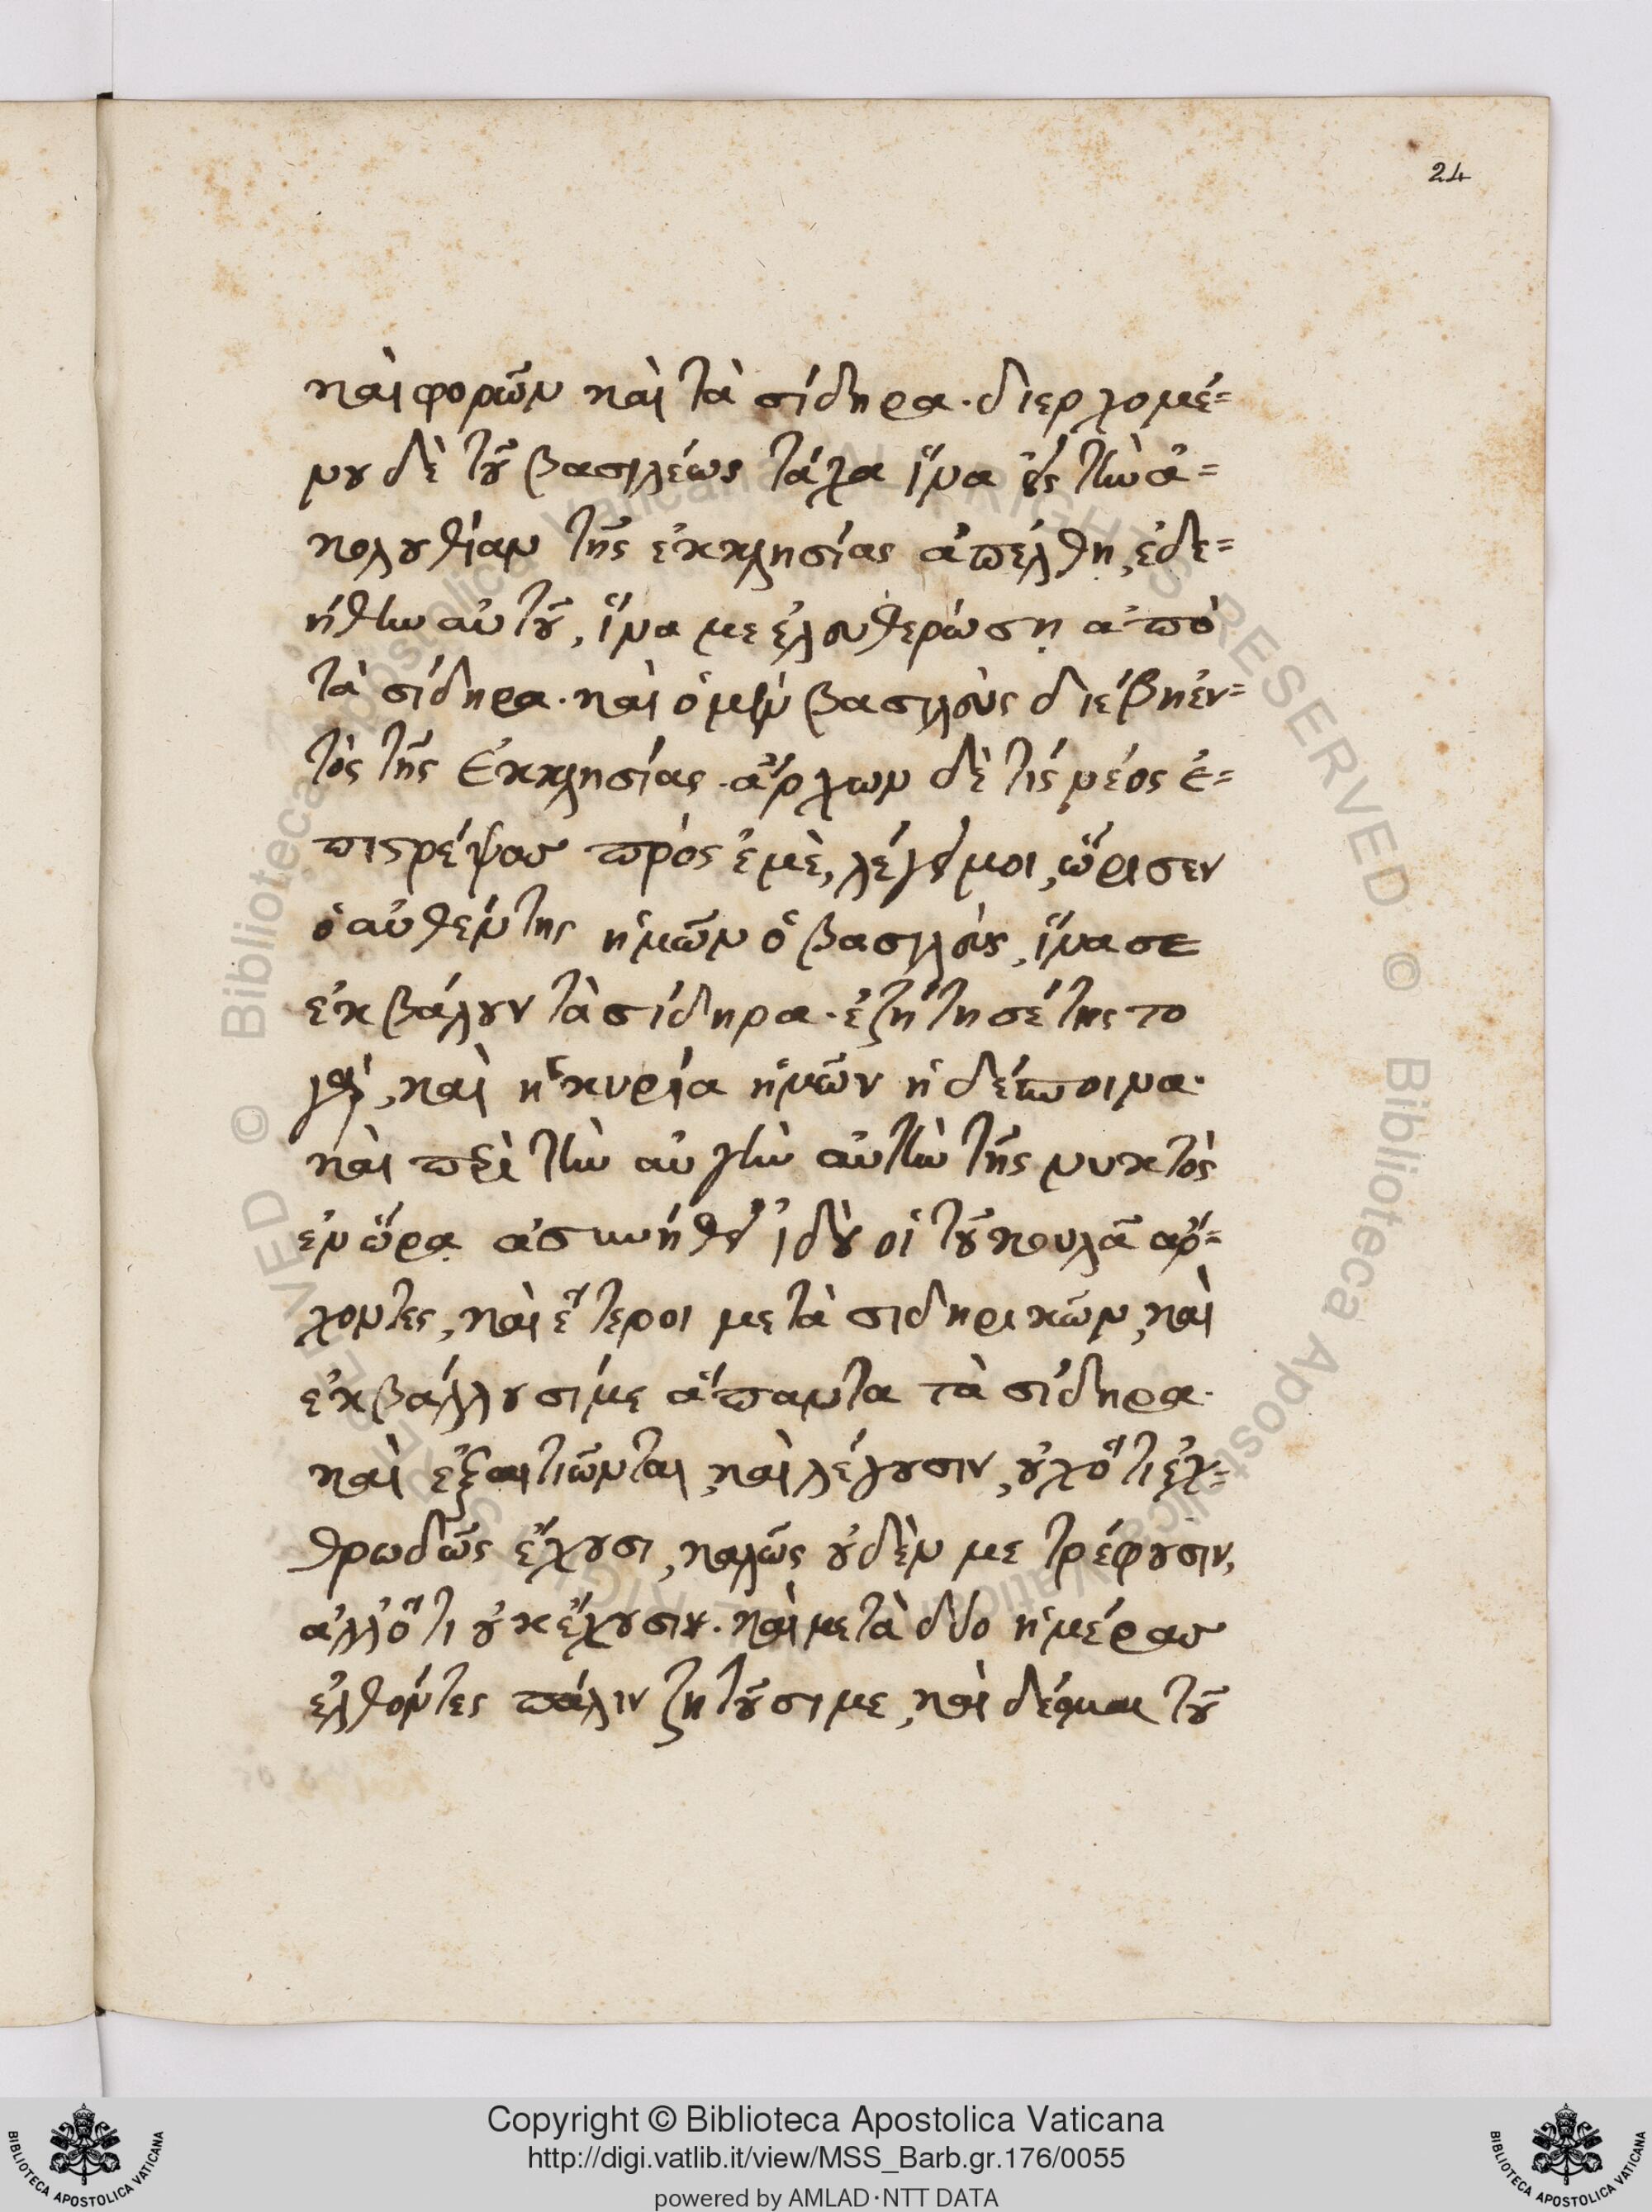 24
καὶ φορῶν καὶ τὰ σίδηρα· διερχομέ=
νου δὲ τοῦ βασιλέως τάχα ἵνα εἰς τὴν ἀ=
κολουθίαν τῆς ἐκκλησίας ἀπέλθῃ, ἐδε=
ήθην αὐτοῦ, ἵνα με ἐλευθερώσῃ ἀπὸ
τὰ σίδηρα· καὶ ὁ μὲν βασιλεὺς διέβη ἐν=
τὸς τῆς Ἐκκλησίας· ἄρχων δέ τις νέος ἐ=
πιστρέψας πρὸς ἐμὲ, λέγει μοι, ὥρισεν
ὁ αὐθέντης ἡμῶν ὁ βασιλεὺς, ἵνα σε
ἐκβάλουν τὰ σίδηρα· ἐζήτησέ της το
γὰρ, καὶ ἡ κυρία ἡμῶν ἡ δέσποινα·
καὶ περὶ τὴν αὐγὴν αὐτὴν τῆς νυκτὸς
ἐν ὥρᾳ ἀσυνήθει ἰδοὺ οἱ τοῦ κουλᾶ ἄρ=
χοντες, καὶ ἕτεροι μετὰ σιδηρικῶν, καὶ
ἐκβάλλουσί με ἅπαντα τὰ σίδηρα·
καὶ ἐξαιτιῶνται, καὶ λέγουσιν, οὐχ ὅτι ἐχ=
θρωδῶς ἔχουσι, καλῶς οὐδὲν με τρέφουσιν,
ἀλλ' ὅτι οὐκ ἔχουσιν· καὶ μετὰ δύο ἡμέρας
ἐλθόντες πάλιν ζητοῦσι με, καὶ δέομαι τοῦ
Copyright © Biblioteca Apostolica Vaticana
http://digi.vatlib.it/view/MSS_Barb.gr.176/0055
powered by AMLAD·NTT DATA